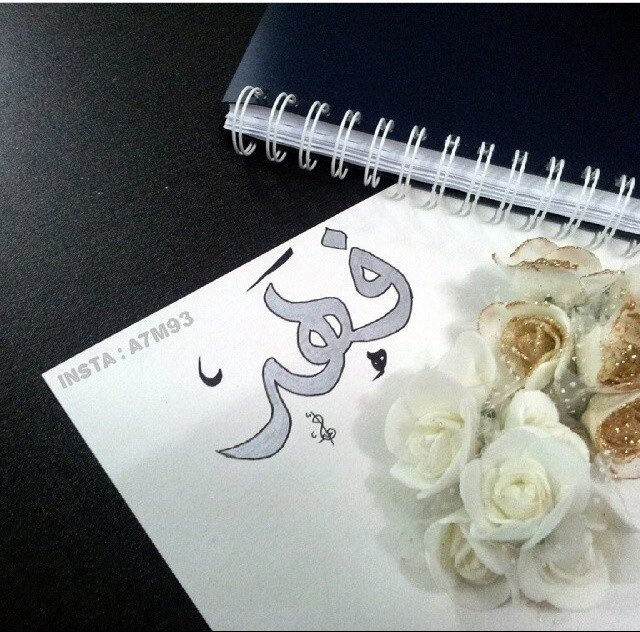 فهَر
INSTA : A7M93